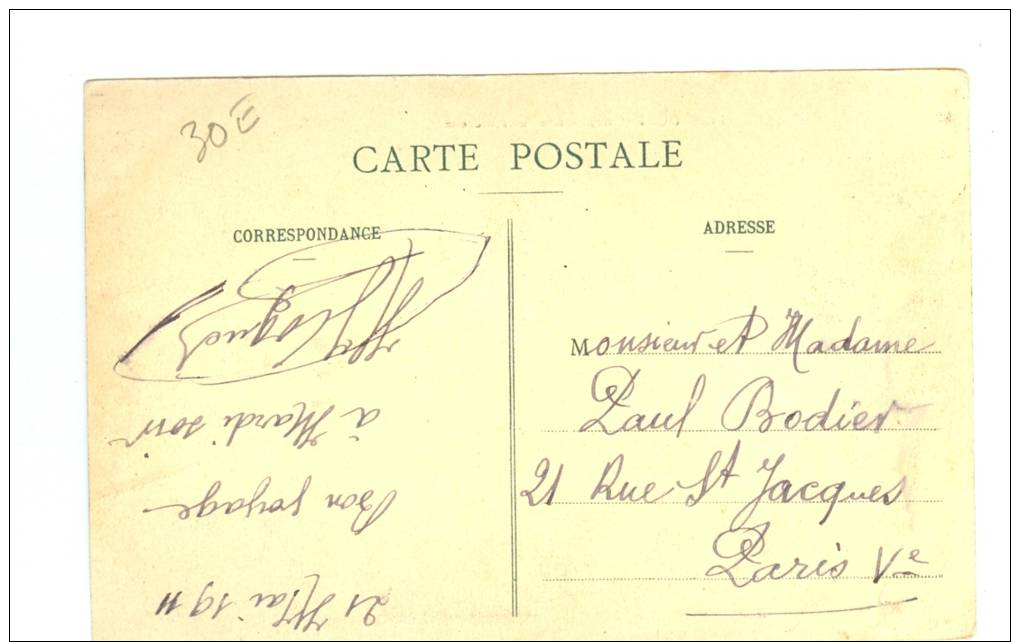 30E
CARTE POSTALE
CORRESPONDANCE
21 Mai 1911
Bon voyage
à Mardi soir
ADRESSE
Monsieur et Madame
Paul Bodier
21 Rue St Jacques
Paris Ve